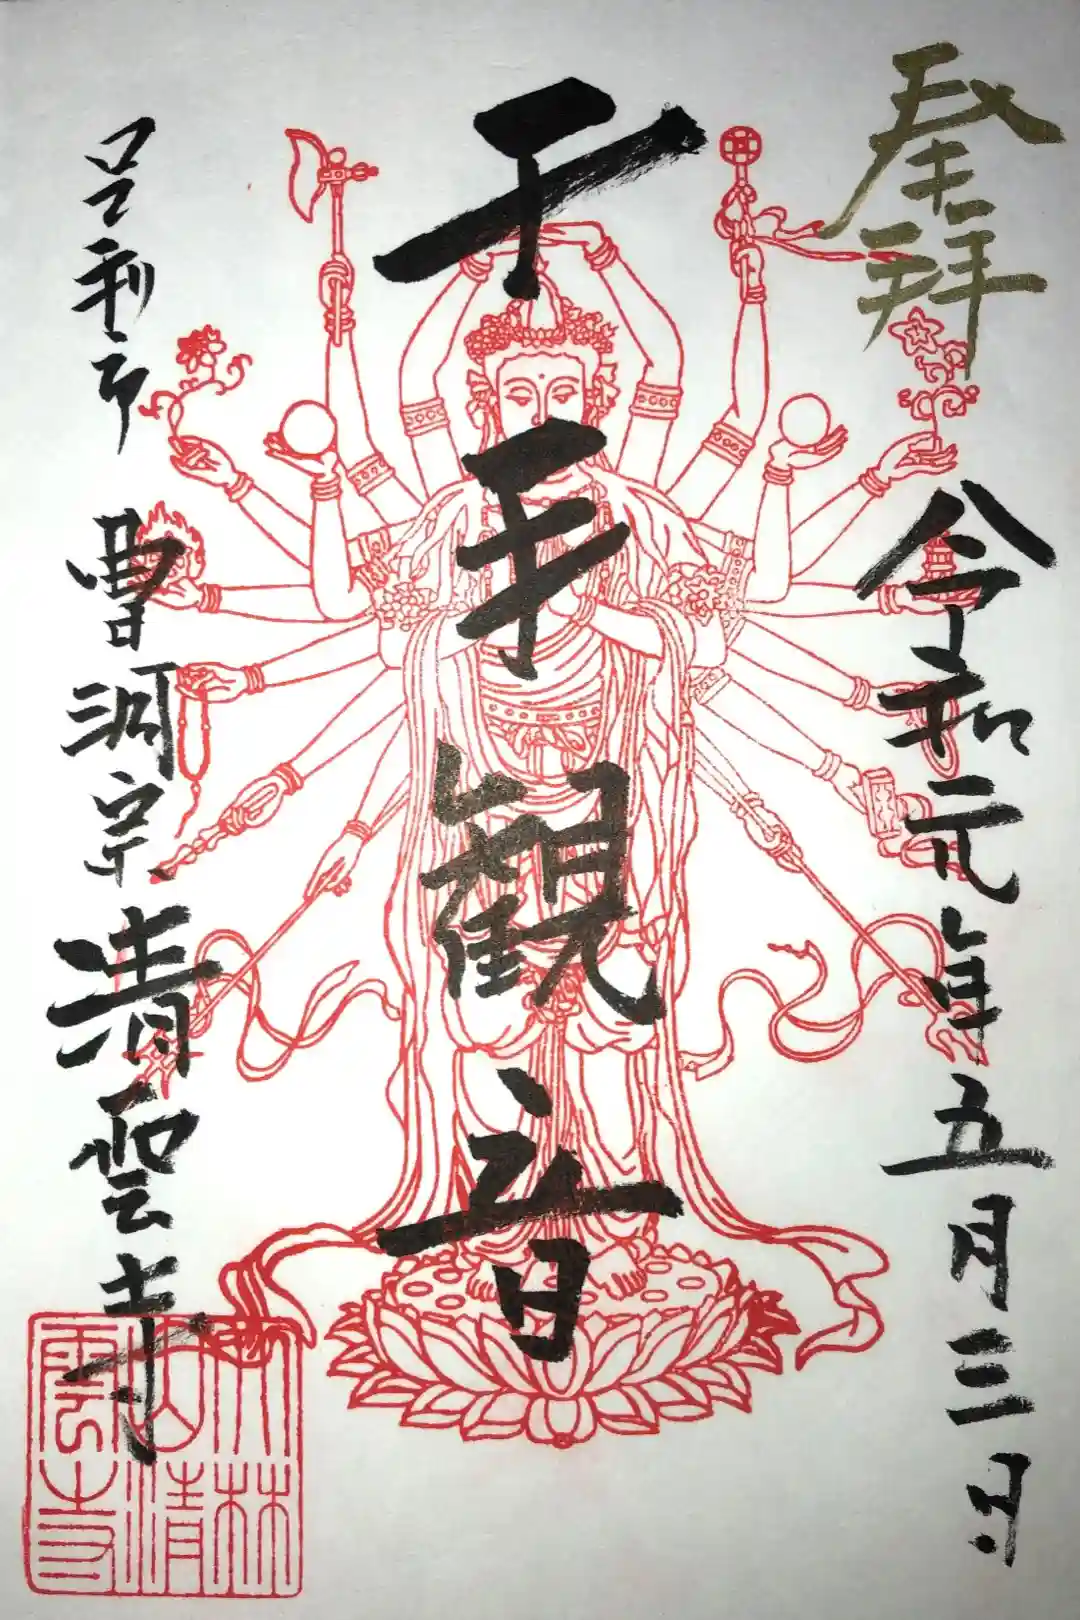 奉拝
令和元年五月三日
千手觀音
足利市 曹洞宗 清雲寺
大林
山清
雲寺